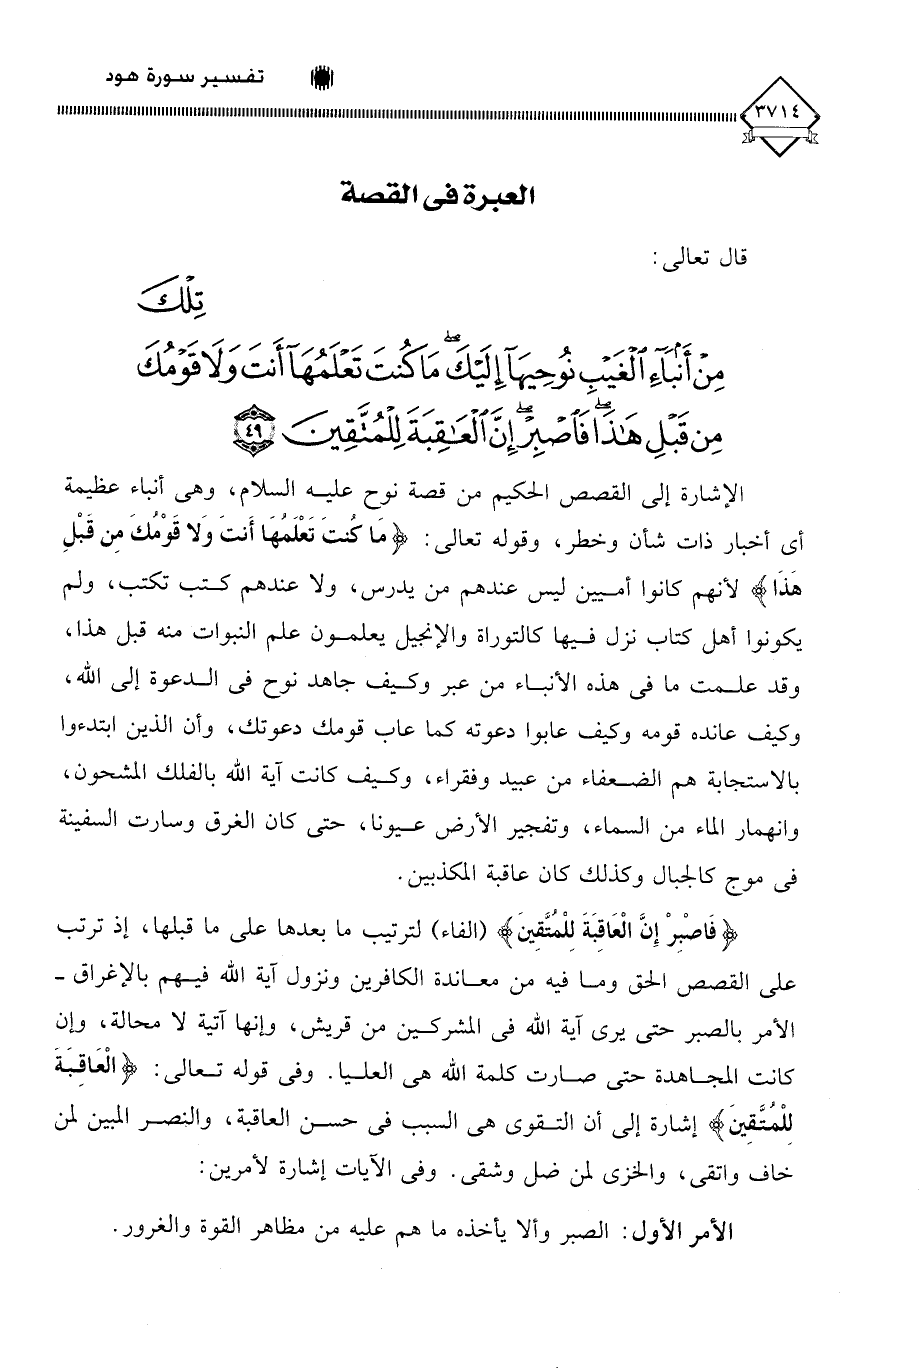 تفسير سورة هود
٣٧١٤
العبرة فى القصة
قال تعالى:
تِلْكَ
مِنْ أَنۢبَآءِ ٱلْغَيْبِ نُوحِيهَآ إِلَيْكَ ۖ مَا كُنتَ تَعْلَمُهَآ أَنتَ وَلَا قَوْمُكَ
مِن قَبْلِ هَٰذَا ۖ فَٱصْبِرْ ۖ إِنَّ ٱلْعَٰقِبَةَ لِلْمُتَّقِينَ ٤٩
الإشارة إلى القصص الحكيم من قصة نوح عليه السلام، وهى أنباء عظيمة
أى أخبار ذات شأن وخطر، وقوله تعالى: ﴿مَا كُنتَ تَعْلَمُهَا أَنتَ وَلا قَوْمُكَ مِن قَبْلِ
هَذَا﴾ لأنهم كانوا أميين ليس عندهم من يدرس، ولا عندهم كتب تكتب، ولم
يكونوا أهل كتاب نزل فيها كالتوراة والإنجيل يعلمون علم النبوات منه قبل هذا،
وقد علمت ما فى هذه الأنباء من عبر وكيف جاهد نوح فى الدعوة إلى الله،
وكيف عانده قومه وكيف عابوا دعوته كما عاب قومك دعوتك، وأن الذين ابتدءوا
بالاستجابة هم الضعفاء من عبيد وفقراء، وكيف كانت آية الله بالفلك المشحون،
وانهمار الماء من السماء، وتفجير الأرض عيونا، حتى كان الغرق وسارت السفينة
فى موج كالجبال وكذلك كان عاقبة المكذبين.
﴿فَاصْبِرْ إِنَّ الْعَاقِبَةَ لِلْمُتَّقِينَ﴾ (الفاء) لترتيب ما بعدها على ما قبلها، إذ ترتب
على القصص الحق وما فيه من معاندة الكافرين ونزول آية الله فيهم بالإغراق -
الأمر بالصبر حتى يرى آية الله فى المشركين من قريش، وإنها آتية لا محالة، وإن
كانت المجاهدة حتى صارت كلمة الله هى العليا. وفى قوله تعالى: ﴿الْعَاقِبَةَ
لِلْمُتَّقِينَ﴾ إشارة إلى أن التقوى هى السبب فى حسن العاقبة، والنصر المبين لمن
خاف واتقى، والخزى لمن ضل وشقى. وفى الآيات إشارة لأمرين:
الأمر الأول: الصبر وألا يأخذه ما هم عليه من مظاهر القوة والغرور.